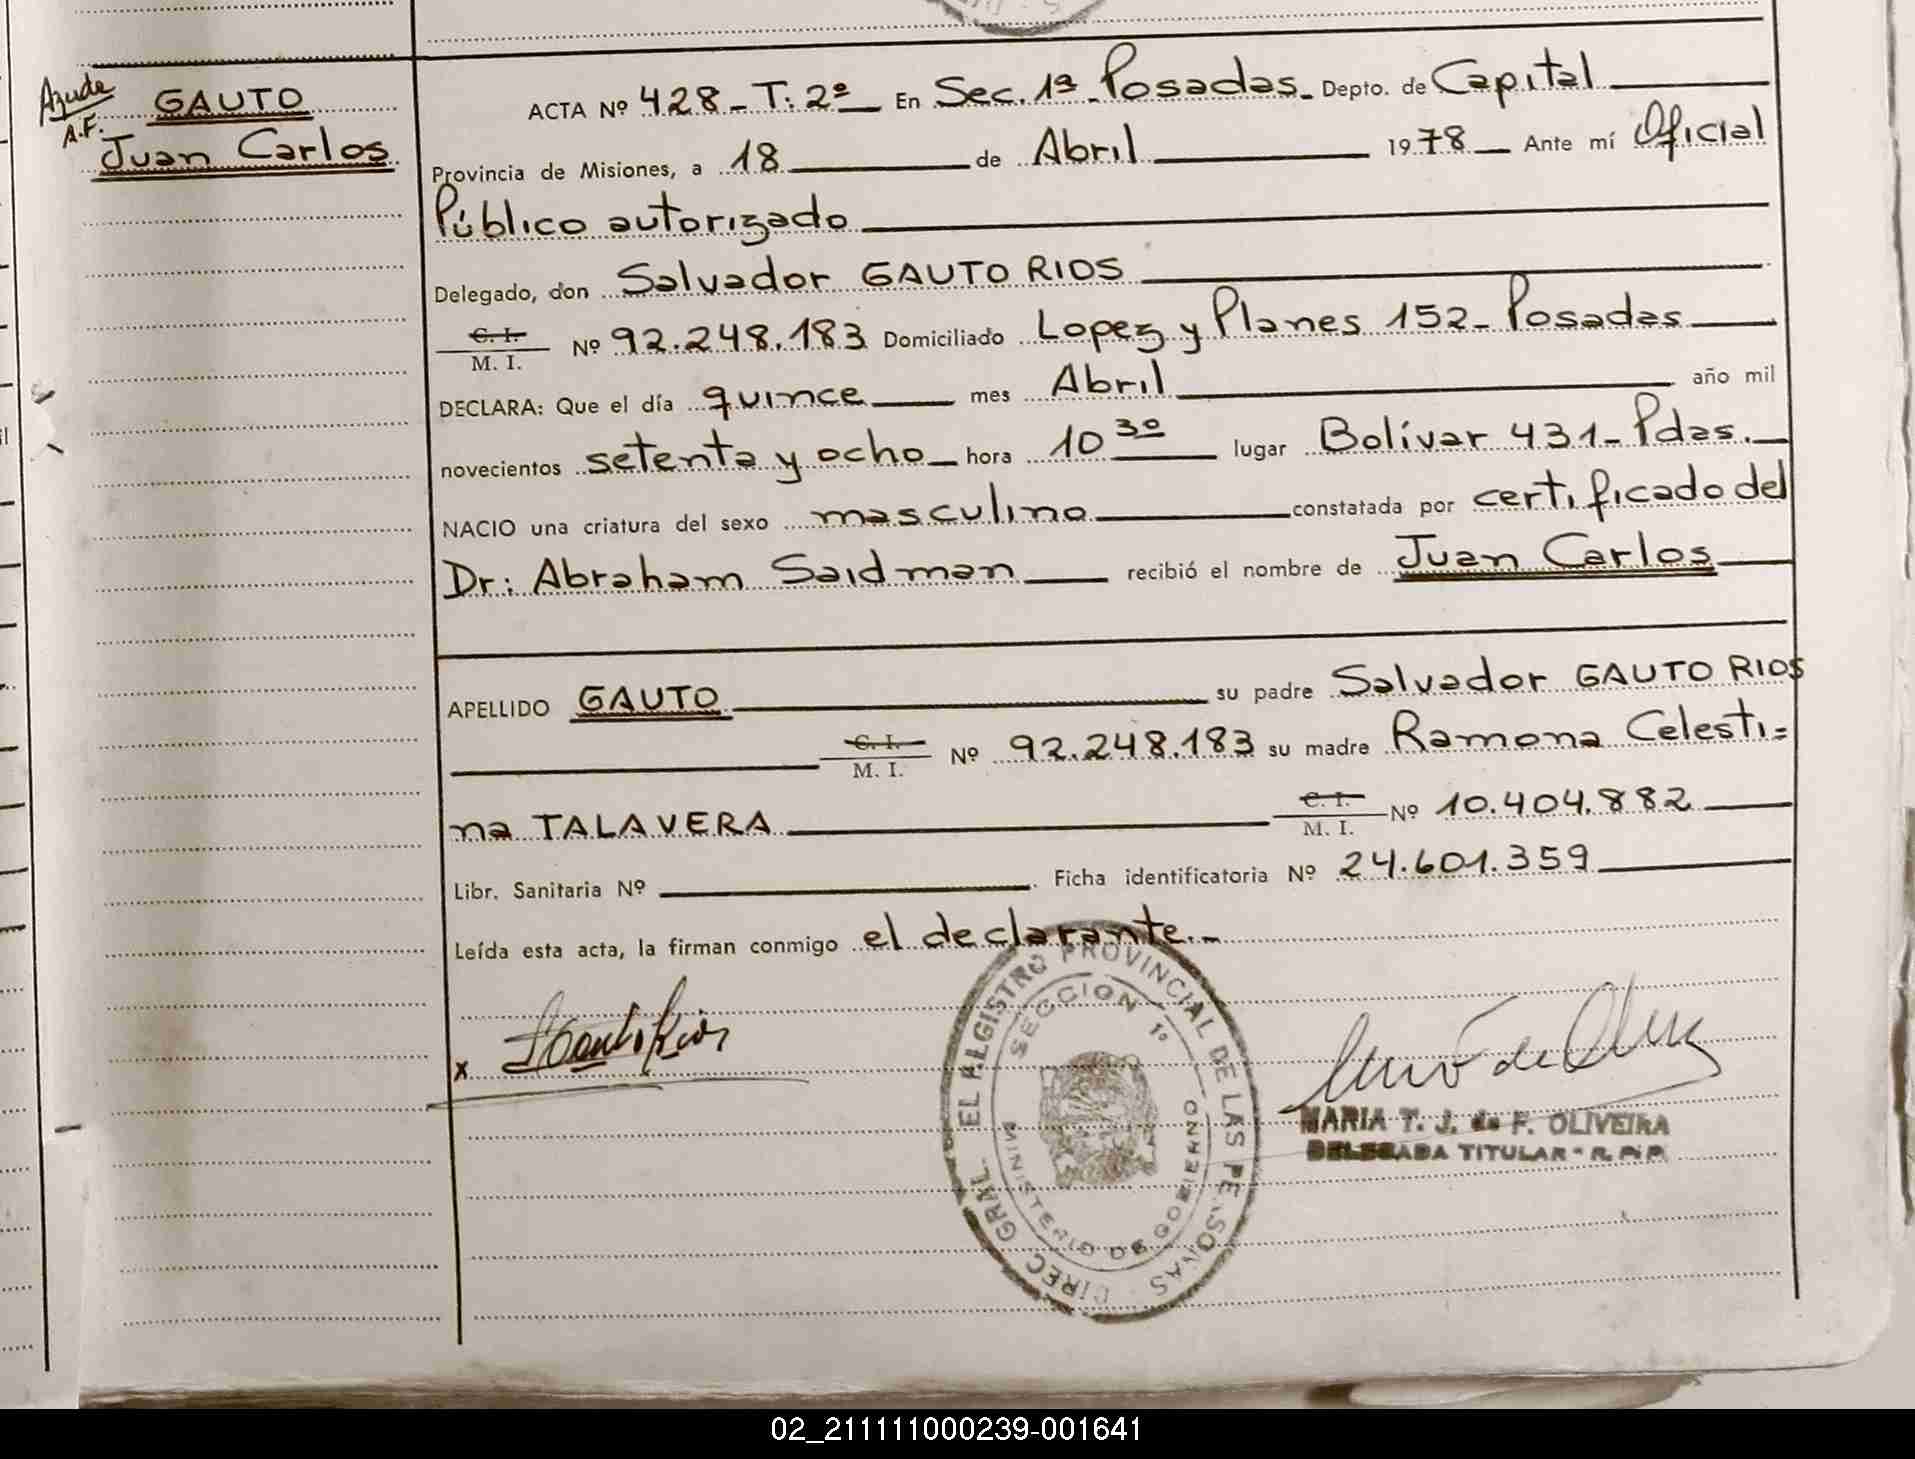 Ayude
A.F.
GAUTO
Juan Carlos
ACTA Nº 428 - T: 2º — En Sec. 1ª - Posadas - Depto. de Capital
Provincia de Misiones, a 18 de Abril 1978 — Ante mí Oficial
Público autorizado
Delegado, don Salvador GAUTO RIOS
C. I.
M. I. Nº 92.248.183 Domiciliado Lopez y Planes 152 - Posadas
DECLARA: Que el día quince mes Abril año mil
novecientos setenta y ocho hora 10 30 lugar Bolívar 431 - Pdas.
NACIO una criatura del sexo masculino constatada por certificado del
Dr: Abraham Saidman recibió el nombre de Juan Carlos
APELLIDO GAUTO su padre Salvador GAUTO RIOS
C. I.
M. I. Nº 92.248.183 su madre Ramona Celesti=
na TALAVERA C. I.
M. I. Nº 10.404.882
Libr. Sanitaria Nº Ficha identificatoria Nº 24.601.359
Leída esta acta, la firman conmigo el declarante.-
x SGauto Rios
DIREC. GRAL. EL REGISTRO PROVINCIAL DE LAS PERSONAS
SECCION 1º
MINISTERIO DE GOBIERNO
MARIA T. J. de F. OLIVEIRA
DELEGADA TITULAR - R. P. P.
02_211111000239-001641